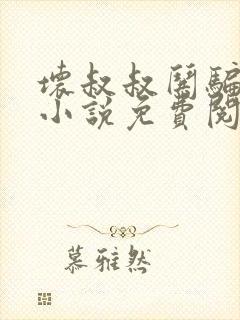 壞叔叔闖騙
小說免費閱
慕雅然